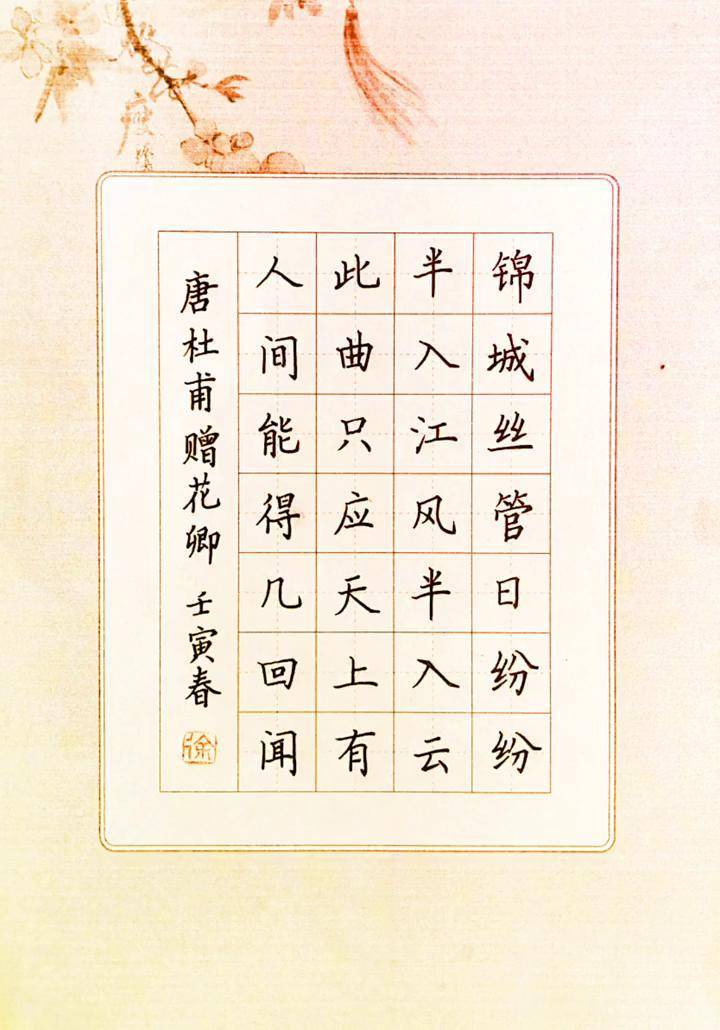 锦城丝管日纷纷
半入江风半入云
此曲只应天上有
人间能得几回闻
唐杜甫赠花卿 壬寅春
徐
瘦